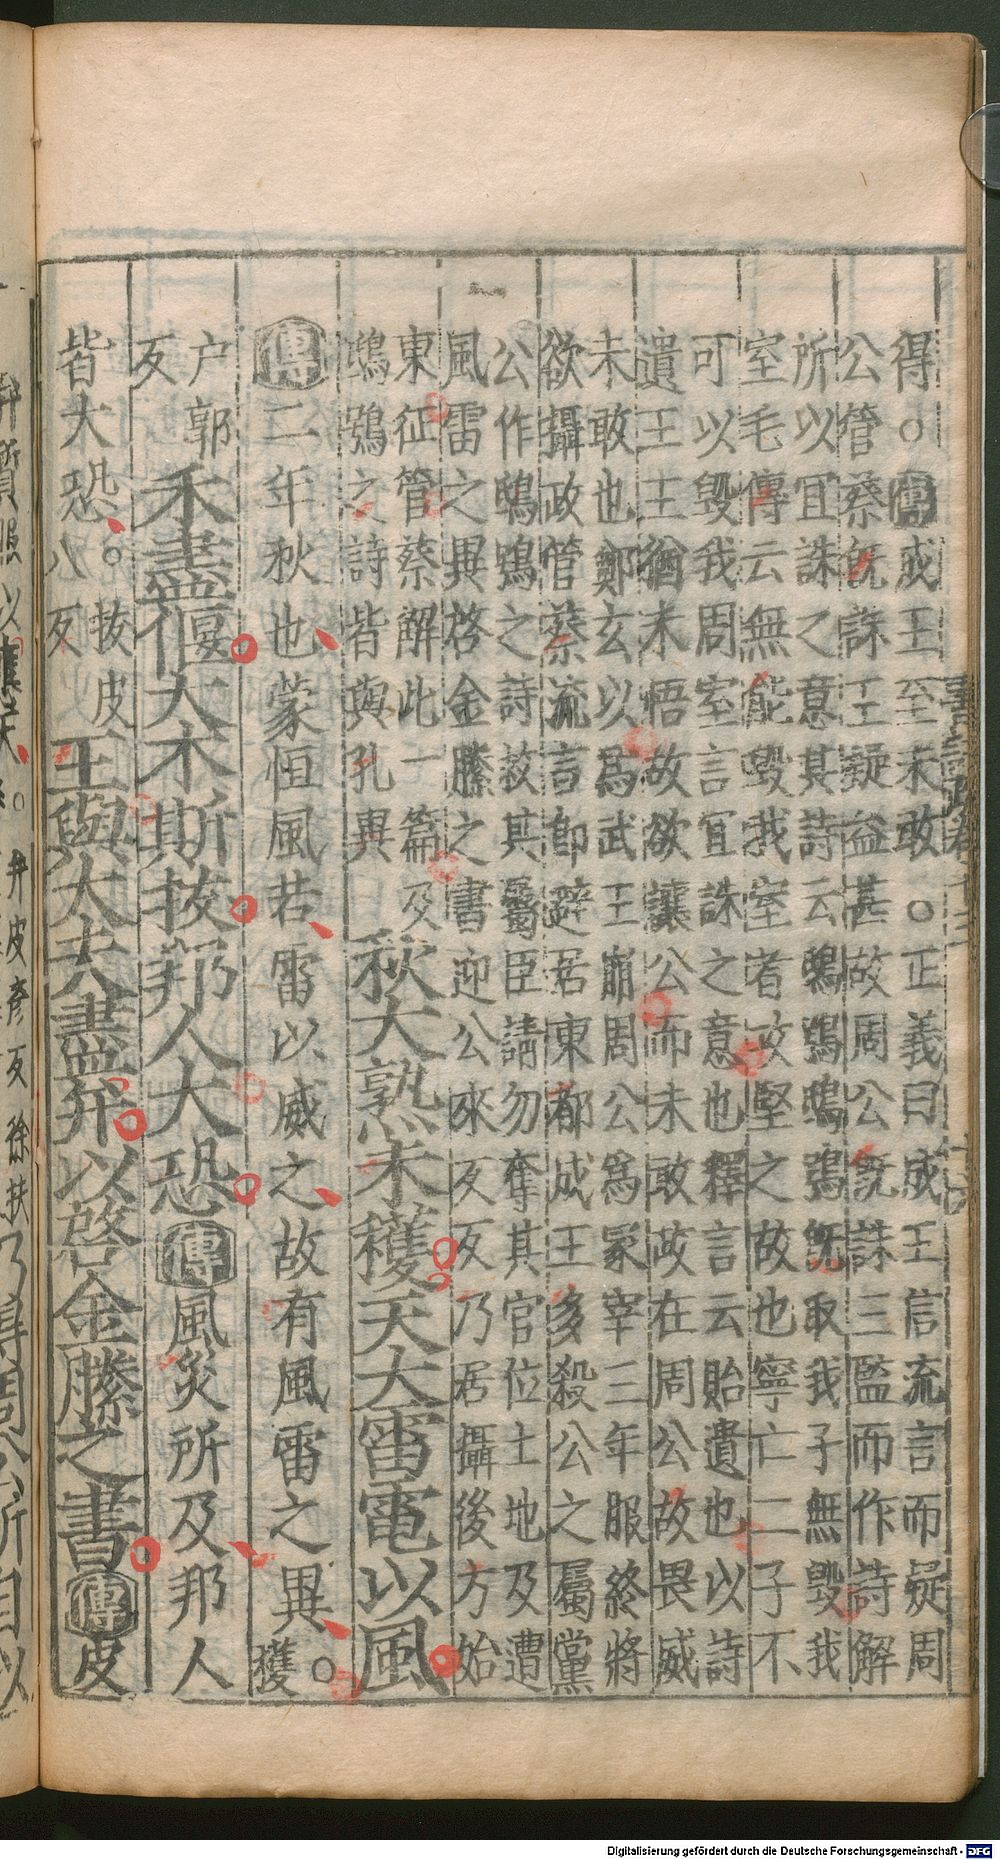 得○傳成王至未敢○正義曰成王信流言而疑周
公管蔡旣誅王疑益甚故周公旣誅三監而作詩解
所以宜誅之意其詩云鴟鴞鴟鴞旣取我子無毀我
室毛傳云無能毀我室者攻堅之故也寧亡二子不
可以毀我周室言宜誅之意也釋言云貽遺也以詩
遺王王猶未悟故欲讓公而未敢政在周公故畏威
未敢也鄭玄以爲武王崩周公爲冢宰三年服終將
欲攝政管蔡流言卽避居東都成王多殺公之屬黨
公作鴟鴞之詩救其屬臣請勿奪其官位土地及遭
風雷之異啓金縢之書迎公來反反乃居攝後方始
東征管蔡解此一篇及
鴟鴞之詩皆與孔異
秋大熟未穫天大雷電以風
傳二年秋也蒙恒風若雷以威之故有風雷之異○穫
户郭
反
禾盡偃大木斯拔邦人大恐傳風災所及邦人
皆大恐○拔皮
八反
王與大夫盡弁以啓金縢之書傳皮
弁質服以應天
○弁皮彥反徐扶
Digitalisierung gefördert durch die Deutsche Forschungsgemeinschaft - DFG